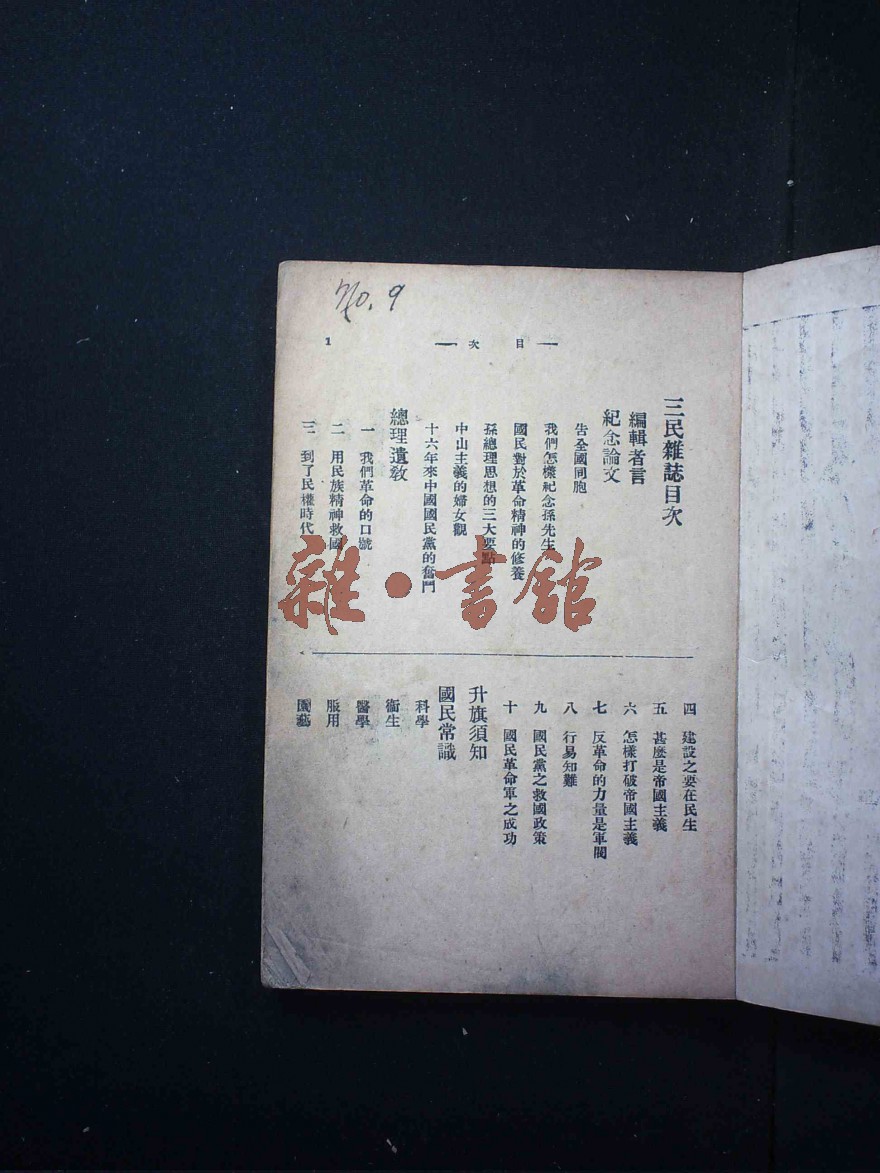 no. 9
1
目次
三民雜誌目次
編輯者言
紀念論文
告全國同胞
我們怎樣紀念孫先生
國民對於革命精神的修養
孫總理思想的三大要點
中山主義的婦女觀
十六年來中國國民黨的奮鬥
總理遺教
一 我們革命的口號
二 用民族精神救國
三 到了民權時代
四 建設之要在民生
五 甚麽是帝國主義
六 怎樣打破帝國主義
七 反革命的力量是軍閥
八 行易知難
九 國民黨之救國政策
十 國民革命軍之成功
升旗須知
國民常識
科學
衞生
醫學
服用
園藝
雜·書館